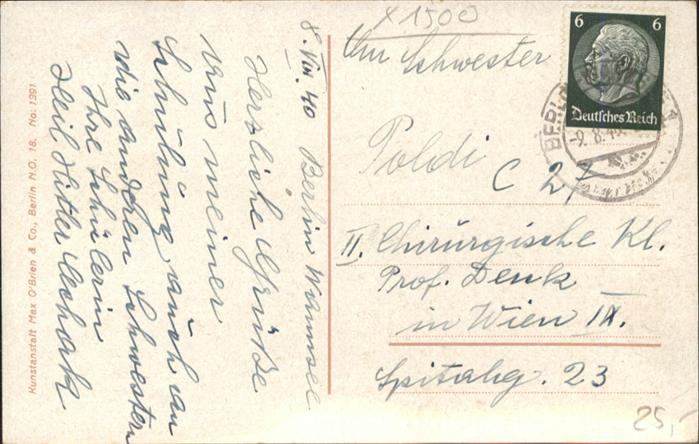 8. VIII. 40 Berlin Wannsee
Herzliche Grüße
aus meiner
Schulung auch an
die anderen Schwestern
Ihre Schülerin
Heil Hitler
Kunstanstalt Max O'Brien & Co., Berlin N.O. 18. No: 1391
x 1500
An Schwester
Poldi
C 27
II. Chirurgische Kl.
Prof. Denk
in Wien IX.
Spitalg. 23
25,-
6 6
Deutsches Reich
BERLIN
-9.8.40